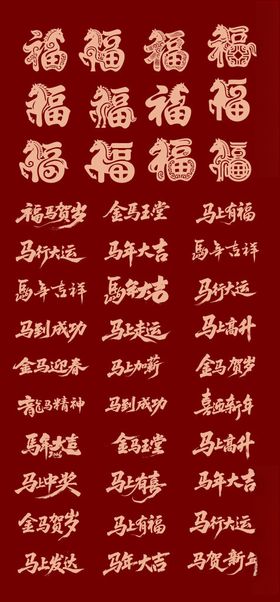 福 福 福 福
福 福 福 福
福 福 福 福
福马贺岁 金马玉堂 马上有福
马行大运 马年大吉 馬年吉祥
馬年吉祥 馬年大吉 马行大运
马到成功 马上走运 马上高升
金马迎春 马上加薪 金马贺岁
龍馬精神 马到成功 喜迎新年
馬年大吉 金马玉堂 马上高升
马上中奖 马上有喜 马年大吉
金马贺岁 马上有福 马行大运
马上发达 马年大吉 马贺新年